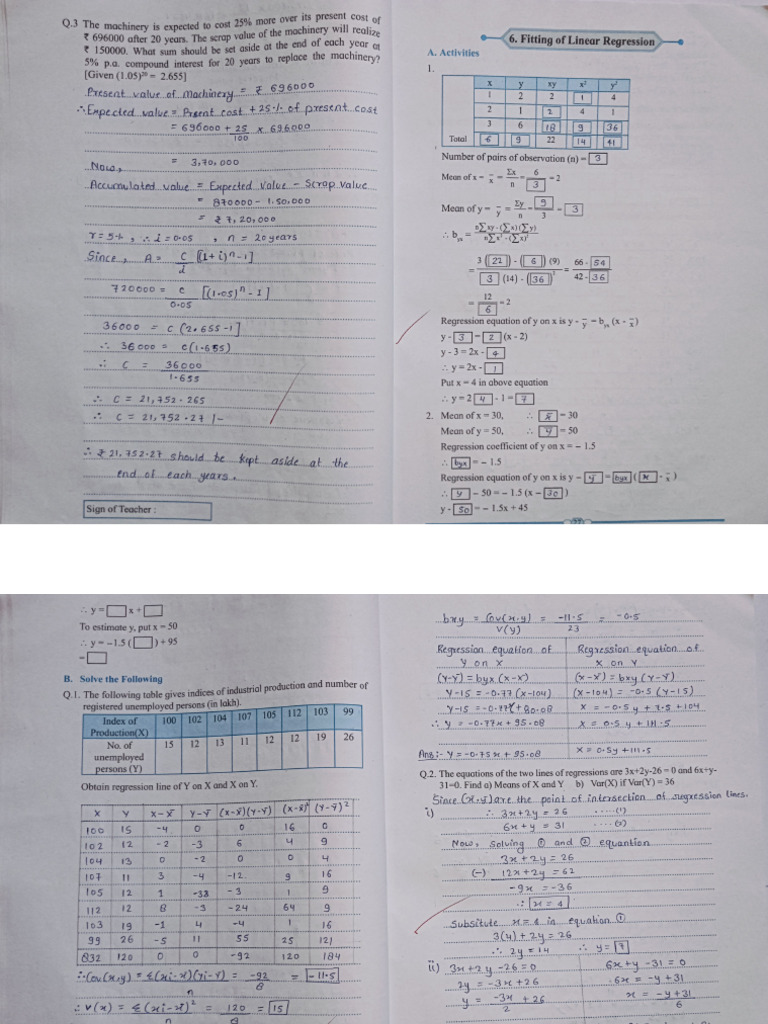 Q.3 The machinery is expected to cost 25% more over its present cost of
₹ 696000 after 20 years. The scrap value of the machinery will realize
₹ 150000. What sum should be set aside at the end of each year at
5% p.a. compound interest for 20 years to replace the machinery?
[Given (1.05)²⁰ = 2.655]
Present value of Machinery = ₹ 696000
∴ Expected value = Prsent cost + 25% of present cost
= 696000 + 25/100 x 696000
= 3,70,000
Now,
Accumulated value = Expected value - Scrap value
= 870000 - 1,50,000
= ₹ 7,20,000
r = 5%, ∴ i = 0.05 , n = 20 years
Since, A = C/i [(1+i)ⁿ-1]
720000 = c/0.05 [(1.05)ⁿ-1]
36000 = c (2.655-1]
∴ 36000 = c(1.655)
∴ C = 36000/1.655
∴ C = 21,752.265
∴ C = 21,752.27 /-
∴ ₹ 21,752.27 should be kept aside at the
end of each years.
Sign of Teacher :
6. Fitting of Linear Regression
A. Activities
1.
x y xy x² y²
1 2 2 1 4
2 1 2 4 1
3 6 18 9 36
Total 6 9 22 14 41
Number of pairs of observation (n) = 3
Mean of x = x̄ = Σx/n = 6/3 = 2
Mean of y = ȳ = Σy/n = 9/3 = 3
∴ b_yx = nΣxy - (Σx)(Σy) / nΣx² - (Σx)²
3 (22) - (6) (9) / 3 (14) - (36)² = 66 - 54 / 42 - 36
= 12/6 = 2
Regression equation of y on x is y - ȳ = b_yx (x - x̄)
y - 3 = 2 (x - 2)
y - 3 = 2x - 4
∴ y = 2x - 1
Put x = 4 in above equation
∴ y = 2 4 - 1 = 7
2. Mean of x = 30, ∴ x̄ = 30
Mean of y = 50, ∴ ȳ = 50
Regression coefficient of y on x = – 1.5
∴ byx = – 1.5
Regression equation of y on x is y – ȳ = byx (x - x̄)
∴ y – 50 = – 1.5 (x – 30)
y - 50 = – 1.5x + 45
∴ y = x +
To estimate y, put x = 50
∴ y = –1.5 ( ) + 95
=
B. Solve the Following
Q.1. The following table gives indices of industrial production and number of
registered unemployed persons (in lakh).
Index of Production(X) 100 102 104 107 105 112 103 99
No. of unemployed persons (Y) 15 12 13 11 12 12 19 26
Obtain regression line of Y on X and X on Y.
X Y X-X̄ Y-Ȳ (X-X̄)(Y-Ȳ) (X-X̄)² (Y-Ȳ)²
100 15 -4 0 0 16 0
102 12 -2 -3 6 4 9
104 13 0 -2 0 0 4
107 11 3 -4 -12 9 16
105 12 1 -38 -3 1 9
112 12 8 -3 -24 64 9
103 19 -1 4 -4 1 16
99 26 -5 11 55 25 121
832 120 0 0 -92 120 184
∴ Cov(x,y) = Σ(xi-x̄)(yi-ȳ)/n = -92/8 = -11.5
∴ V(x) = Σ(xi-x̄)²/n = 120/8 = 15
bxy = Cov(x,y)/V(y) = -11.5/23 = -0.5
Regression equation of Y on X
(Y-Ȳ) = byx (X-X̄)
Y-15 = -0.77 (x-104)
Y-15 = -0.77x + 80.08
∴ Y = -0.77x + 95.08
Ans:- Y = -0.75x + 95.08
Regression equation of X on Y
(X-X̄) = bxy (Y-Ȳ)
(x-104) = -0.5 (Y-15)
x = -0.5y + 7.5 + 104
x = 0.5y + 111.5
x = 0.5y + 111.5
Q.2. The equations of the two lines of regressions are 3x+2y-26 = 0 and 6x+y-
31=0. Find a) Means of X and Y b) Var(X) if Var(Y) = 36
Since (x̄,ȳ) are the point of intersection of regression lines.
i) ∴ 3x+2y = 26 ...(1)
6x + y = 31 ...(2)
Now, Solving ① and ② equantion
3x + 2y = 26
(-) 12x + 2y = 62
-9x = -36
∴ x = 4
Subsitute x = 4 in equation ①
3(4) + 2y = 26
∴ 2y = 14 ∴ y = 7
ii) 3x + 2y - 26 = 0
2y = -3x + 26
y = -3x/2 + 26
6x + y - 31 = 0
6x = -y + 31
x = -y + 31/6